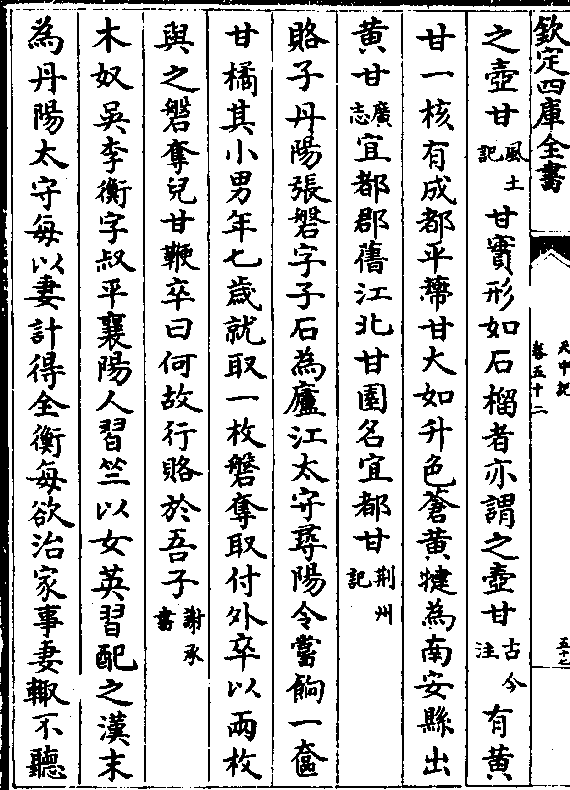 欽定四庫全書
天中記
卷五十二
五十七
之壺甘風土記甘實形如石榴者亦謂之壺甘古今注有黃
甘一核有成都平蔕甘大如升色蒼黃犍為南安縣出
黃甘廣志宜都郡舊江北甘園名宜都甘荆州記
賂子丹陽張磐字子石為廬江太守尋陽令嘗餉一奩
甘橘其小男年七歲就取一枚磐奪取付外卒以兩枚
與之磐奪兒甘鞭卒曰何故行賂於吾子謝承書
木奴吳李衡字叔平襄陽人習竺以女英習配之漢末
為丹陽太守每以妻計得全衡每欲治家事妻輙不聽